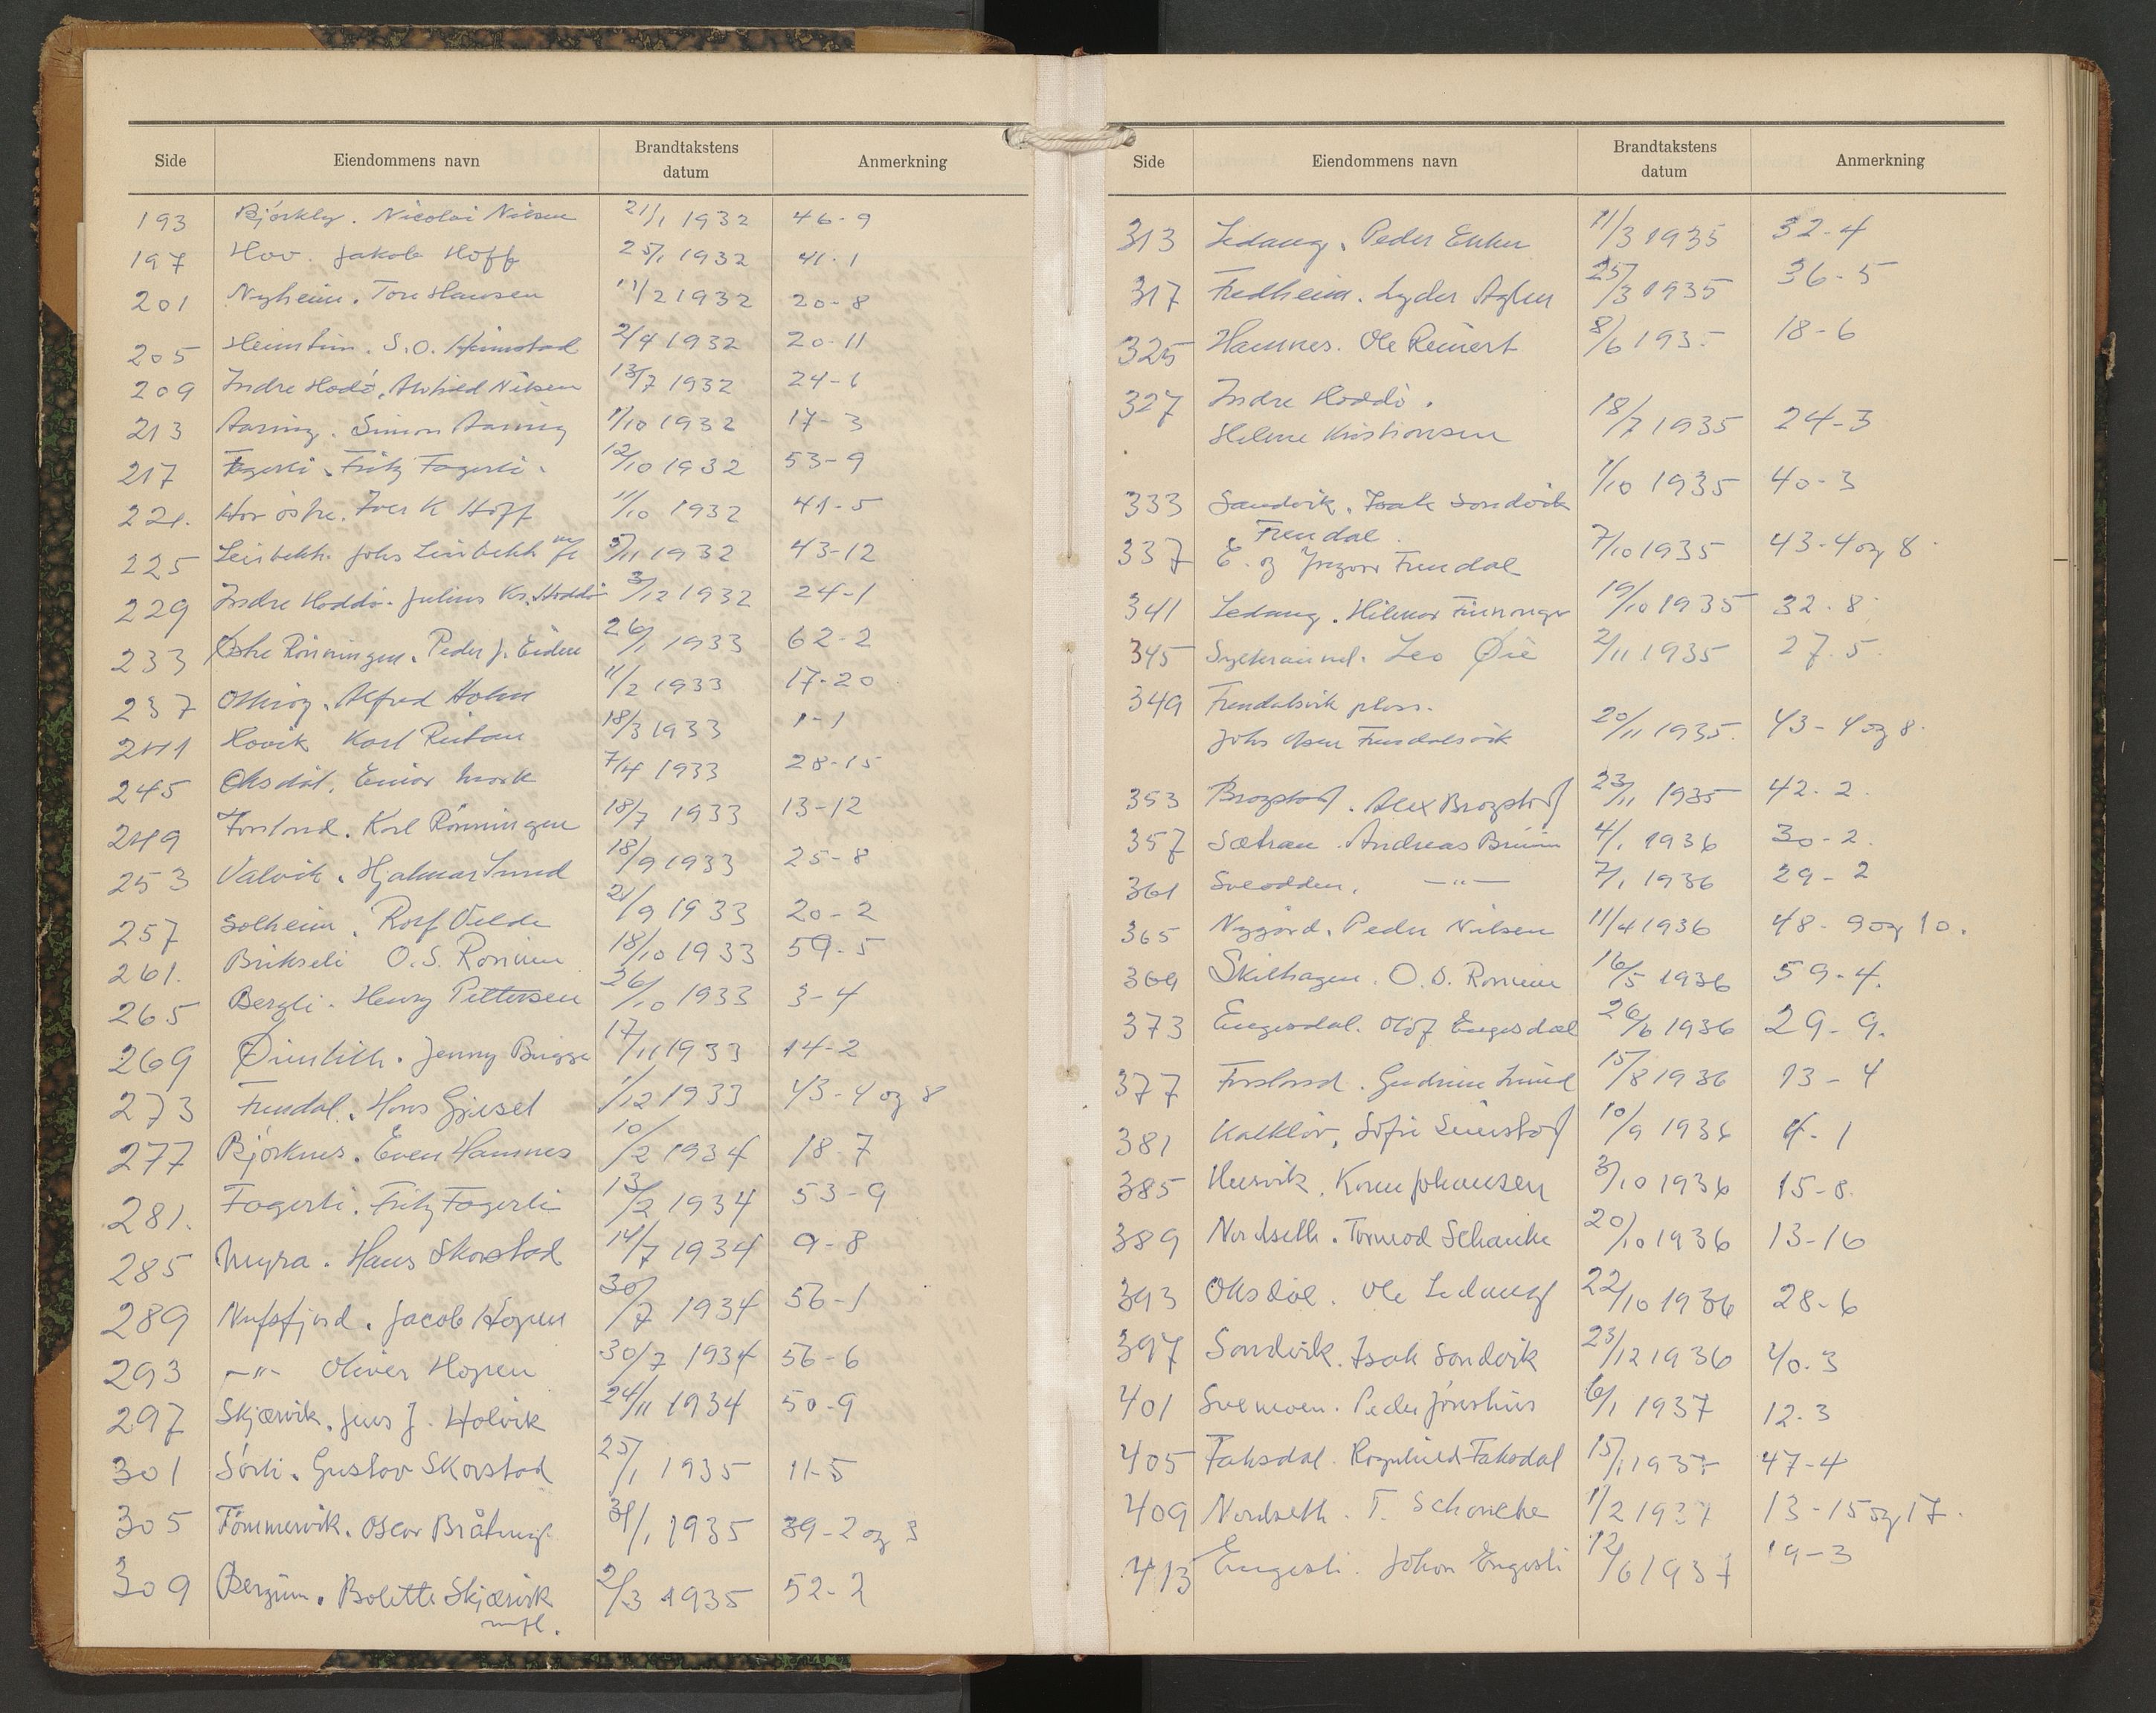 Side Eiendommens navn Brandtakstens datum Anmerkning
193 Björkly. Nicolai Nilsen 21/1 1932 46-9
197 Hov. Jakob Hoff 25/1 1932 41-1
201 Nyheim. Tore Hansen 11/2 1932 20-8
205 Heimtun. S.O. Heimstad 2/4 1932 20-11
209 Indre Hodö. Nilsen 13/7 1932 24-6
213 Aaring. Simon Aaring 1/10 1932 17-3
217 Fagerli. Fritz Fagerli. 12/10 1932 53-9
221. Hov östre. Iver K Hoff 11/10 1932 41-5
225 Leirbekk. Johs Leirbekk 5/11 1932 43-12
229 Indre Hoddö. Julius Kr. Hoddö 3/12 1932 24-1
233 Østre Rönningen. Peder J. Eidene 26/1 1933 62-2
237 Alfred Holm 11/2 1933 17-20
241 Hovik Karl 18/3 1933 1-1
245 Oksdal. Einar Mork 7/4 1933 28-15
249 Forslund. Karl Rönningen 18/7 1933 13-12
253 Valvik. Hjalmar Lund 18/9 1933 25-8
257 Solheim. Rolf Velde 21/9 1933 20-2
261. O.S. Rosinen 18/10 1933 59-5
265 Bergli. Henry Pettersen 26/10 1933 3-4
269 Jenny Brigge 17/11 1933 14-2
273 Finndal. Hans Gjesel 1/12 1933 43-4 og 8
277 Björknes. Even Hamnes 10/2 1934 18-7
281. Fagerli. Fritz Fagerli 13/2 1934 53-9
285 Myra. Hans Skorstad 14/7 1934 9-8
289 Jacob Hopen 30/7 1934 56-1
293 -"- Oliver Hopen 30/7 1934 56-6
297 Skjærvik. Jens J. Holvik 24/11 1934 50-9
301 Sörli. Gustav Skorstad 25/1 1935 11-5
305 Tömmervik. Oscar 31/1 1935 39-2 og 3
309 Bergum. Bolette Skjærvik 2/3 1935 52-2
mfl.
Side Eiendommens navn Brandtakstens datum Anmerkning
313 Ledang. Peder 11/3 1935 32-4
317 Fredheim. Lyder Aglen 25/3 1935 36-5
325 Hamnes. Ole Reinert 8/6 1935 18-6
327 Indre Hoddö.
Helene Kristiansen 18/7 1935 24-3
333 Sandvik. Isak Sandvik 1/10 1935 40-3
Finndal.
337 E. og Ingvar Finndal 7/10 1935 43-4 og 8
341 Ledang. Hilmar 19/10 1935 32.8
345 Leo Øie 2/11 1935 27.5.
349 Finndalsvik plass.
Johs Olsen Finndalsvik 20/11 1935. 43-4 og 8.
353 Brogstad. Alex Brogstad 23/11 1935 42.2.
357 Sætran. Andreas Bruun 4/1 1936 30-2.
361 Sveodden. -"- 7/1 1936 29-2
365 Nygård. Peder Nilsen 11/4 1936 48-9 og 10.
369 Skilhagen. O.S. Rosinen 16/5 1936 59-4.
373 Engesdal. Olof Engesdal 26/6 1936 29-9.
377 Forslund. Gudrun Lund 15/8 1936 13-4
381 Kalklöv. Sofie 10/9 1936 4-1
385 Husvik. Karen Johansen 3/10 1936 15-8
389 Nordseth. Tormod Schanke 20/10 1936 13-16
393 Oksdal. Ole Ledang 22/10 1936 28-6
397 Sandvik. Isak Sandvik 23/12 1936 40.3
401 Svenmoen. Peder 6/1 1937 12.3
405 Faksdal. Ragnhild Faksdal 15/1 1937 47-4
409 Nordseth. T. Schancke 1/2 1937 13-15 og 17.
413 Engesli. Johan Engesli 12/6 1937 19-3